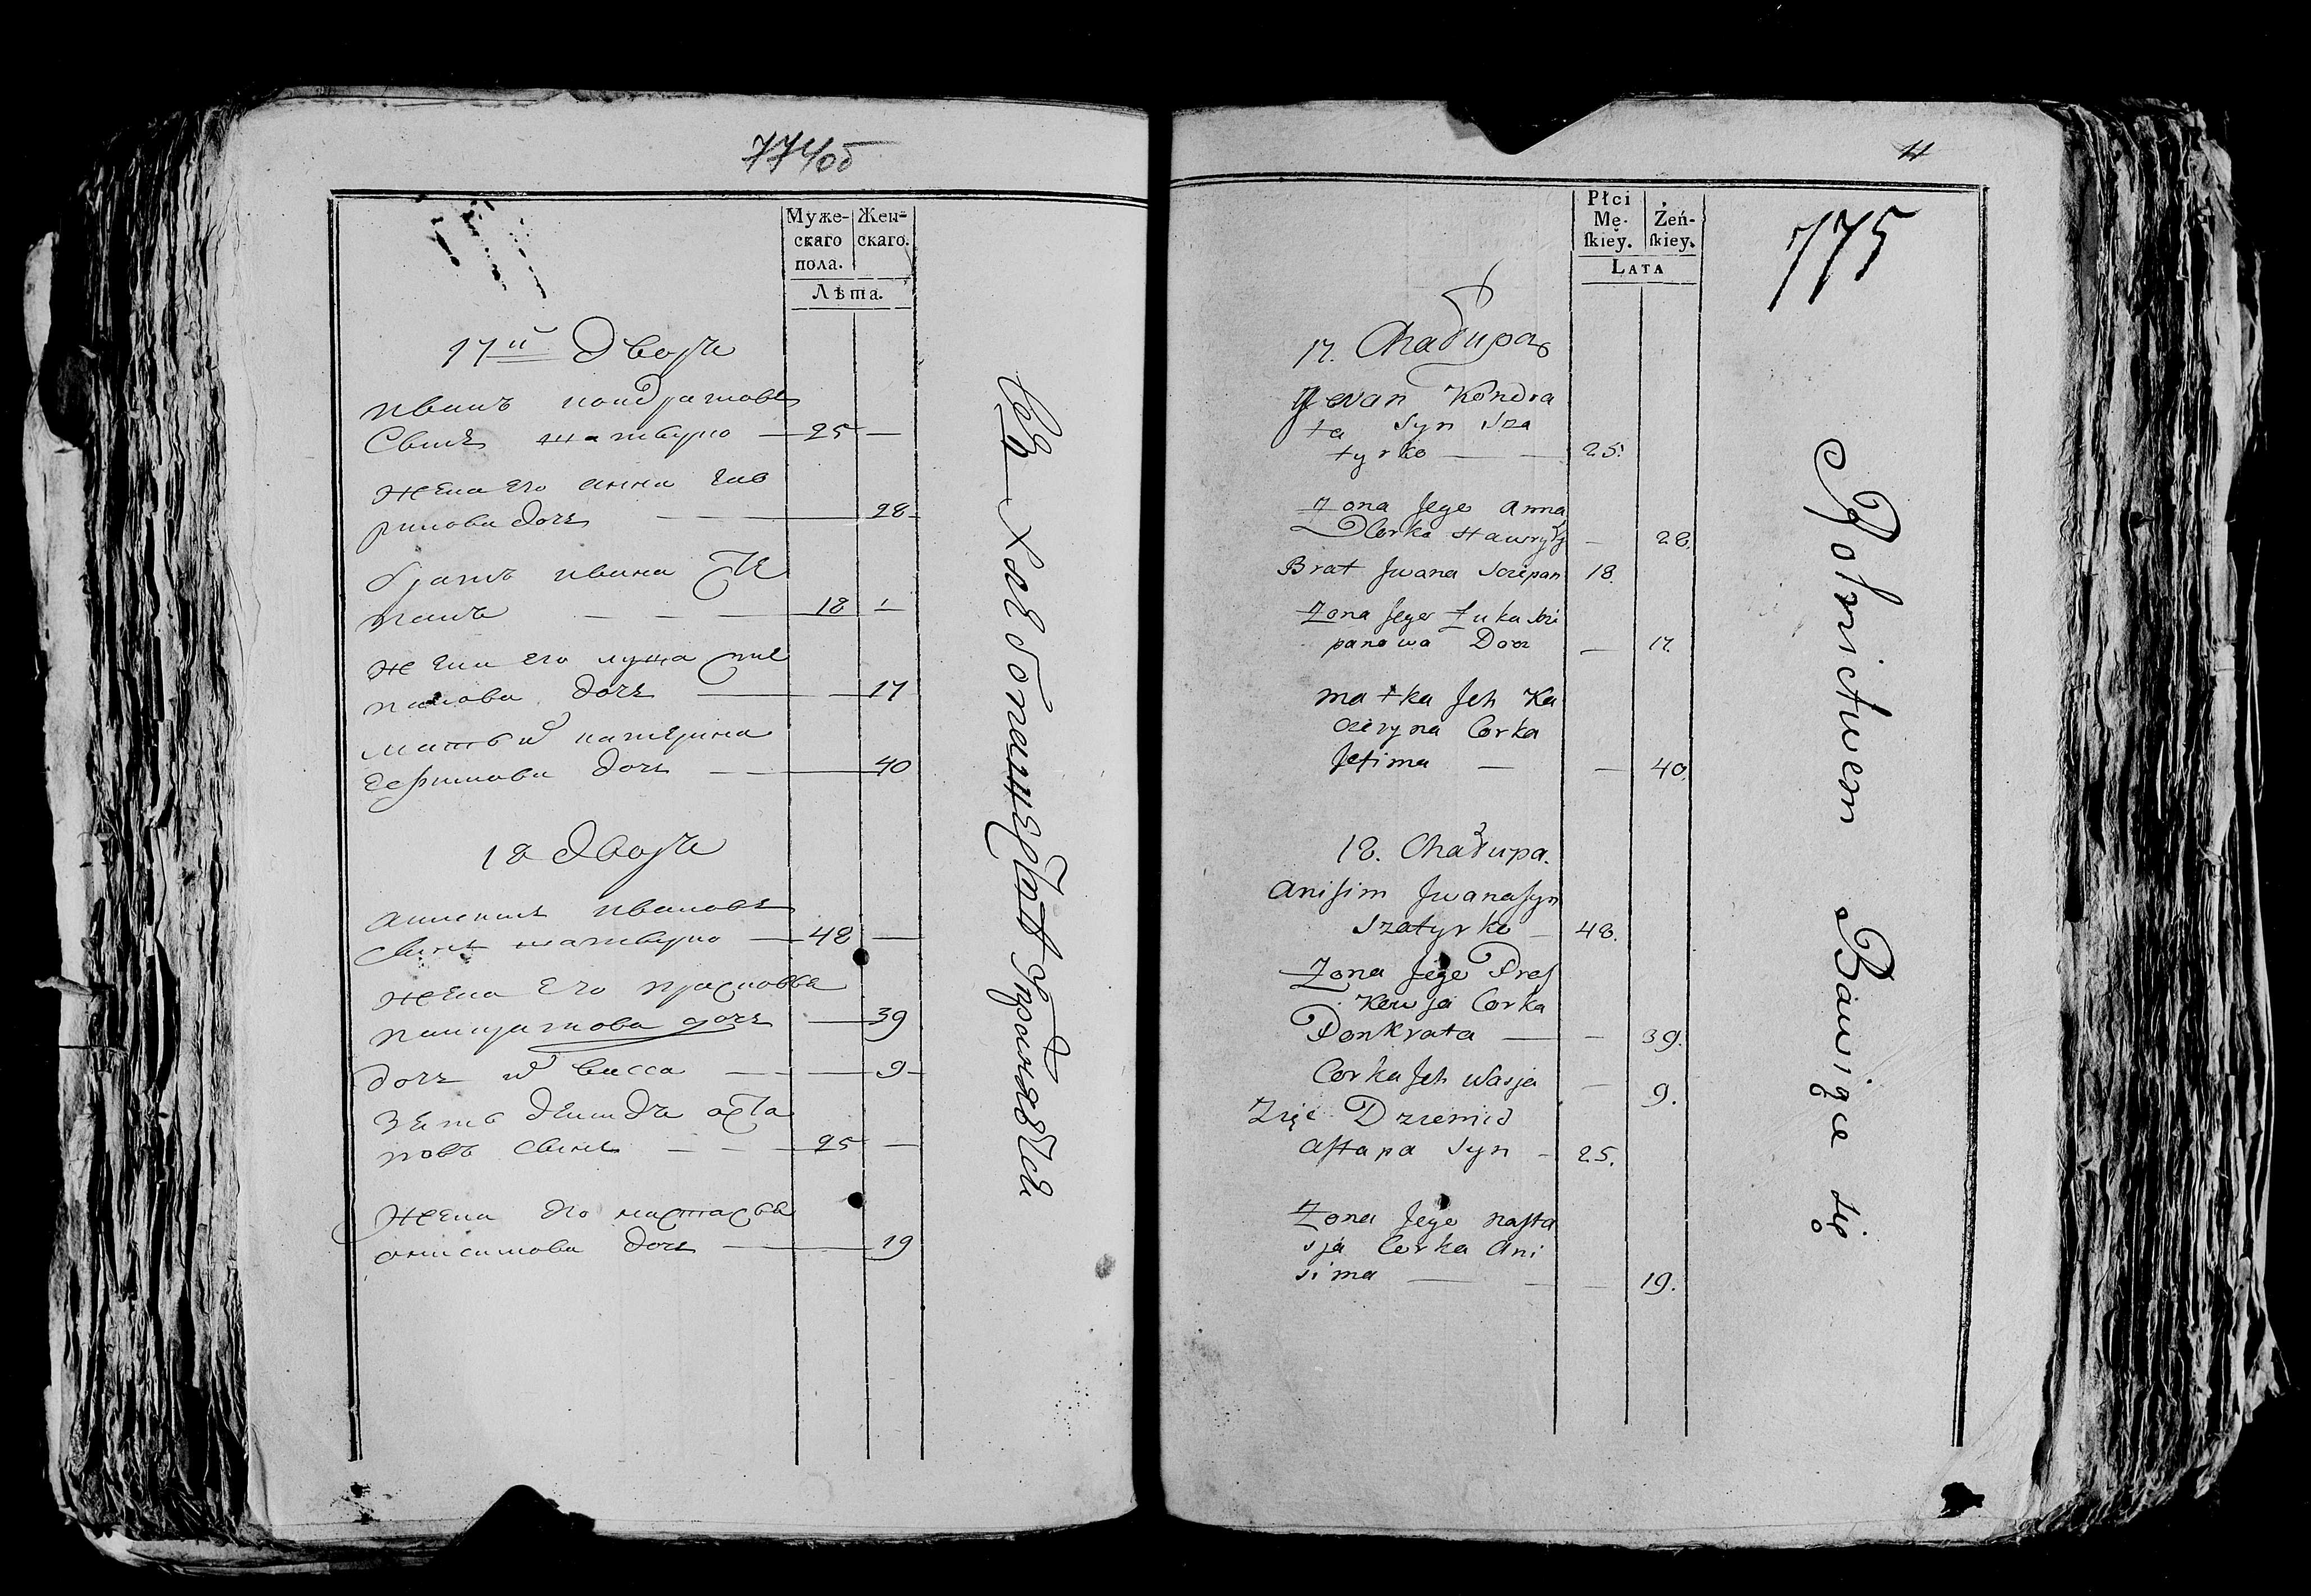 774об
Муже-
скаго
пола.
Жен-
скаго.
Лѣта.
17й дворъ
иванъ кондратовъ
Сынъ шатырко — 25 —
жена его анна гав
рилова дочь — 28
братъ ивана сте
панъ — — — 18 —
жена его луца сте
панова дочь — 17
мать их катерина
ефимова дочь — — 40
18 дворъ
анисимъ ивановъ
сынъ шатырко — 48 —
жена его прасковья
панкратова дочь — 39
дочь их васса — — — 9
зять демидъ оста
повъ сынъ — — — 25 —
жена его настасья
анисимова дочь — 19
Всѣ хлебопашествомъ
упражняются
4
775
Płci
Mę-
skiey.
Żeń-
skiey.
Lata
17. Chałupa
Jewan Kondra
ta Syn Sza
tyrko — — 25.
Zona Jego Anna
Corka Hawryły — 28.
Brat Jwana Sciepan 18.
Zona Jego Łuka Sci
panowa Docz — 17.
matka Jch Ka
cieryna Corka
Jefima — — 40.
18. Chałupa.
Anisim Jwana Syn
Szatyrko — 48.
Zona Jego Pras
kewja Corka
Pankrata — — 39.
Corka Jch Wasja — 9.
Zięć Dziemid
Astapa Syn — 25.
Zona Jego Nasta
sja Corka Ani
sima — — — 19.
Rolnictwem Bawiące się